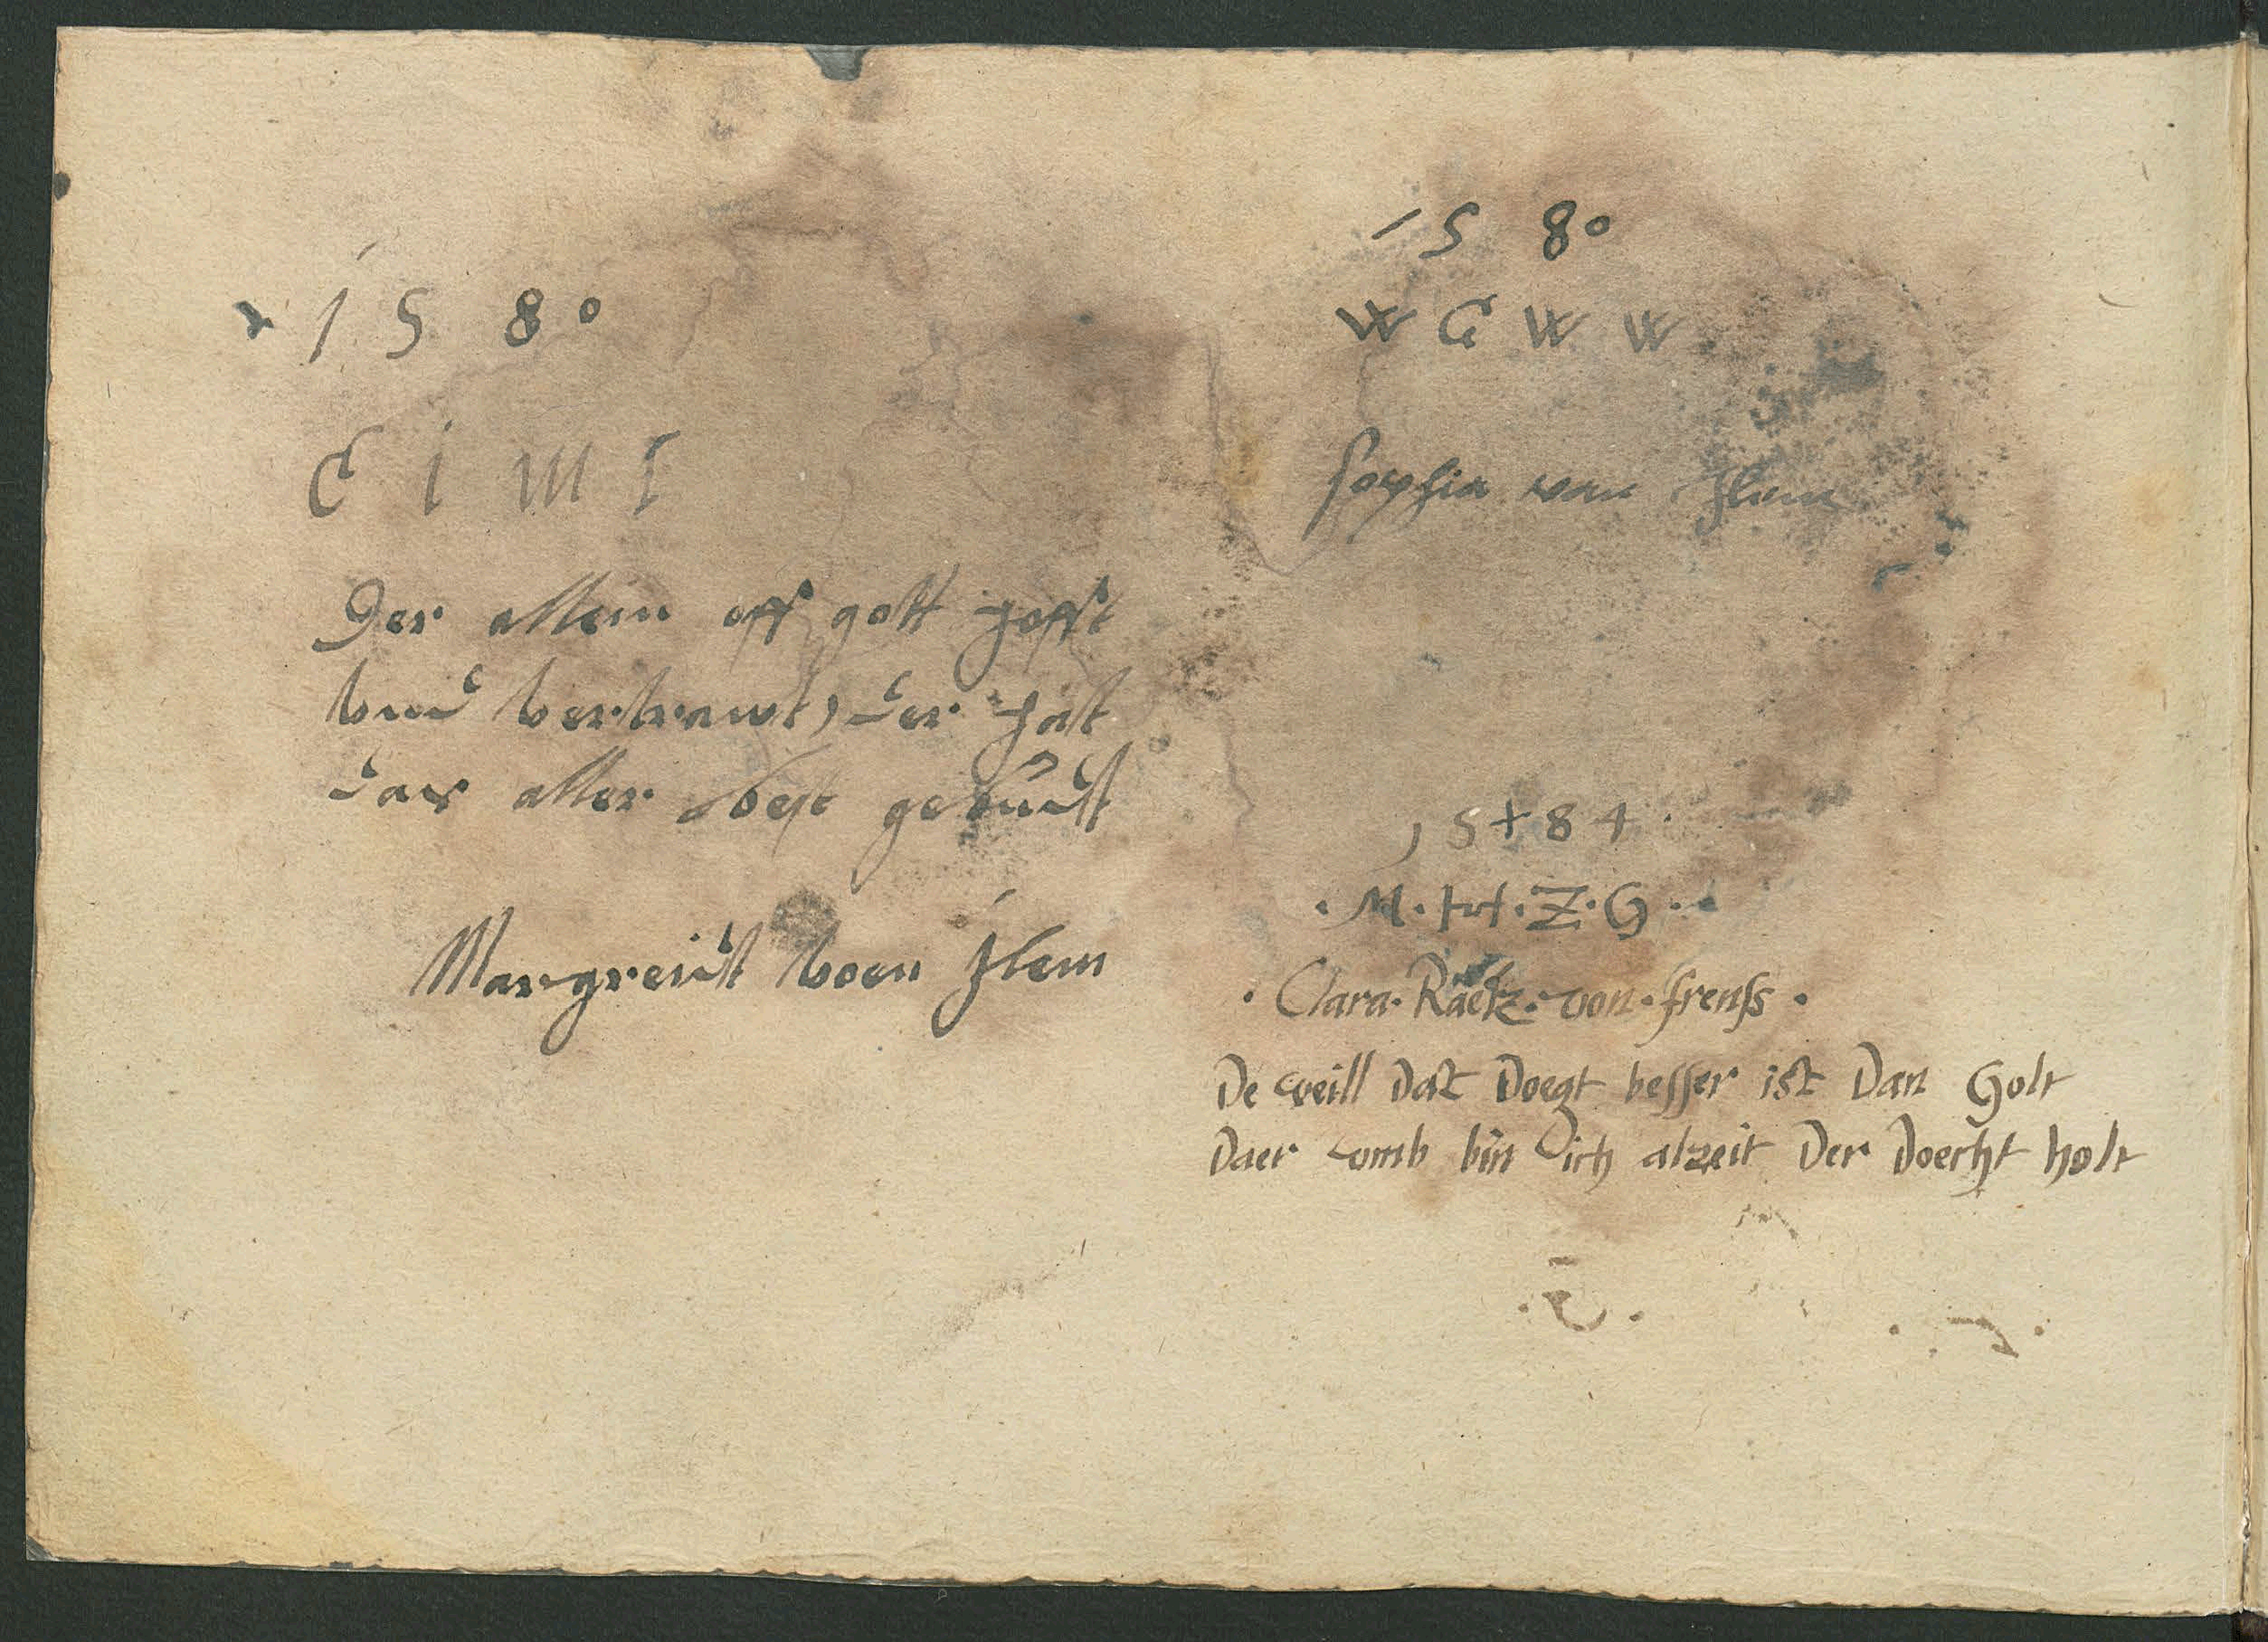 1 5 8 0
E i m I
Der allein off gott hofft
vnd vertrawt, der hat
das aller best gebudt
Margreidt voen Ilem
1 5 8 0
W G W W
sophia van Ilem
1 5 + 8 4 .
. M . H . Z . G .
. Clara . Raetz . von . frenss .
De weill dat Doegt besser ist Dan Golt
Daer vmb bin ich alzeit Der Doecht holt